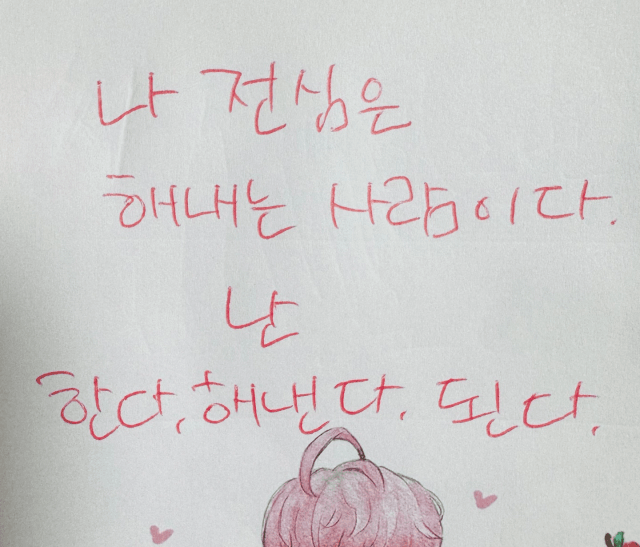 나 전심은
해내는 사람이다.
난
한다, 해낸다. 된다.